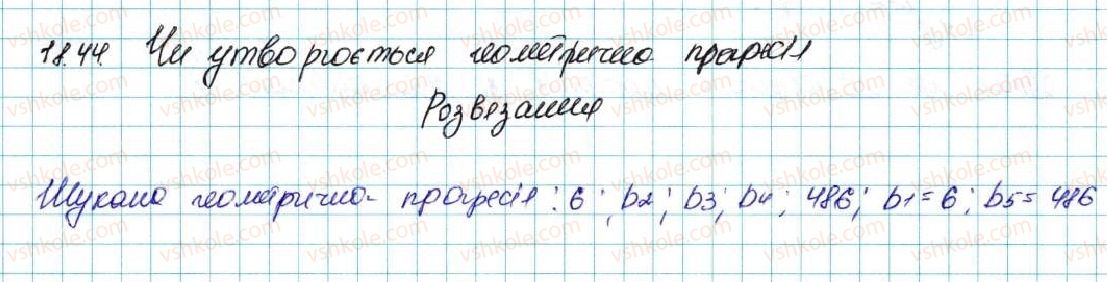 18.44. Чи утворюється геометрична прогресія
Розвязання
Шукана геометрична прогресія: 6; b2; b3; b4; 486; b1=6; b5=486